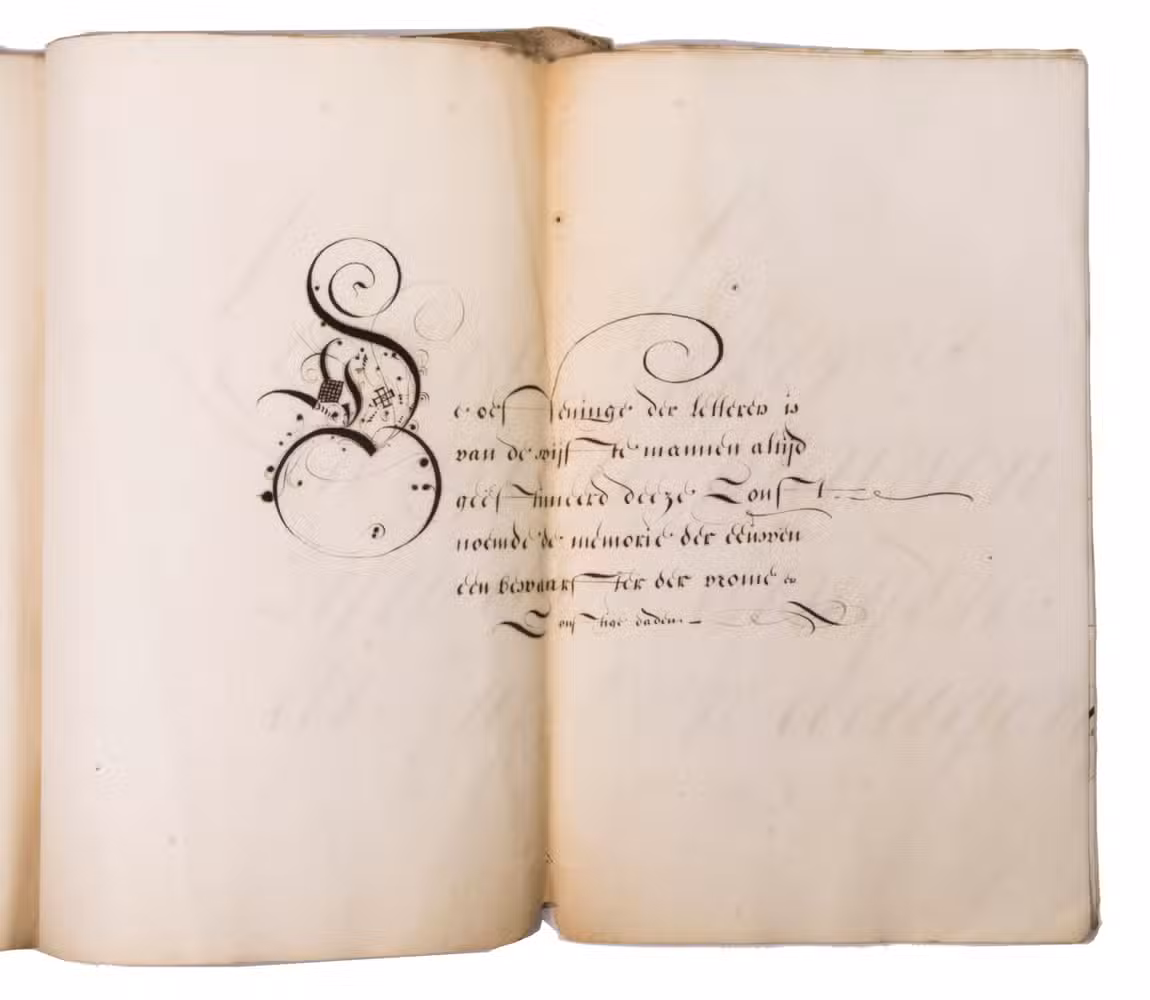 De oeffeninge der letteren is
van de wijste mannen altijd
geëstimeerd deeze Const
noemde de memorie der eeuwen
een bewaarster der vrome en
Constige daden.